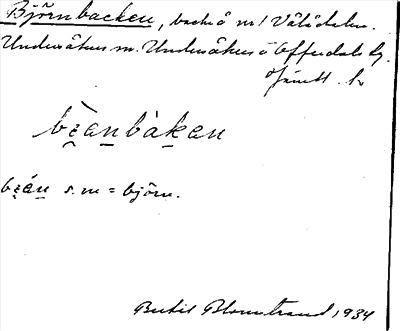 Björnbacken, backe å nr 1 Välådalen.
Undersåkers sn. Undersåkers o Offerdals tg.
Jämtl. l.
bʒ̀anbàkan
bʒán s.m = björn.
Bertil Blomstrand 1934